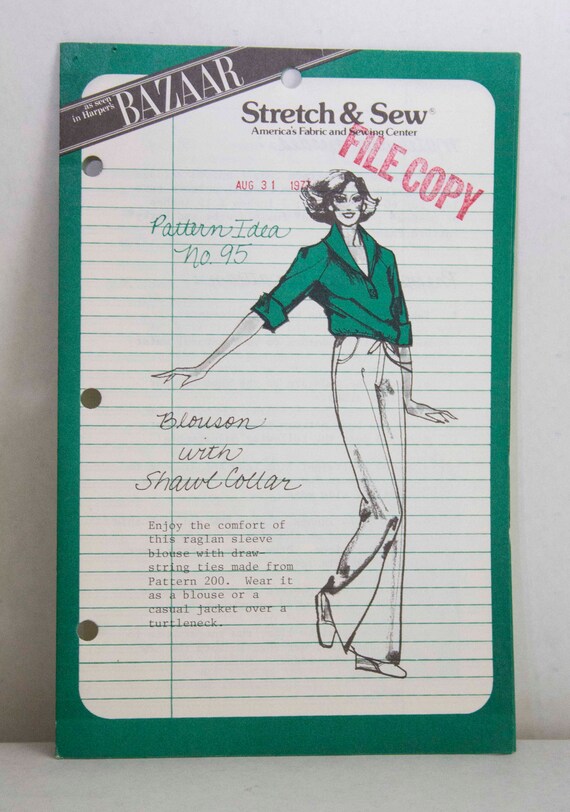 as seen
in Harper's
BAZAAR
Stretch & Sew®
America's Fabric and Sewing Center
FILE COPY
AUG 31 1977
Pattern Idea
No. 95
Blouson
with
Shawl Collar
Enjoy the comfort of
this raglan sleeve
blouse with draw-
string ties made from
Pattern 200. Wear it
as a blouse or a
casual jacket over a
turtleneck.